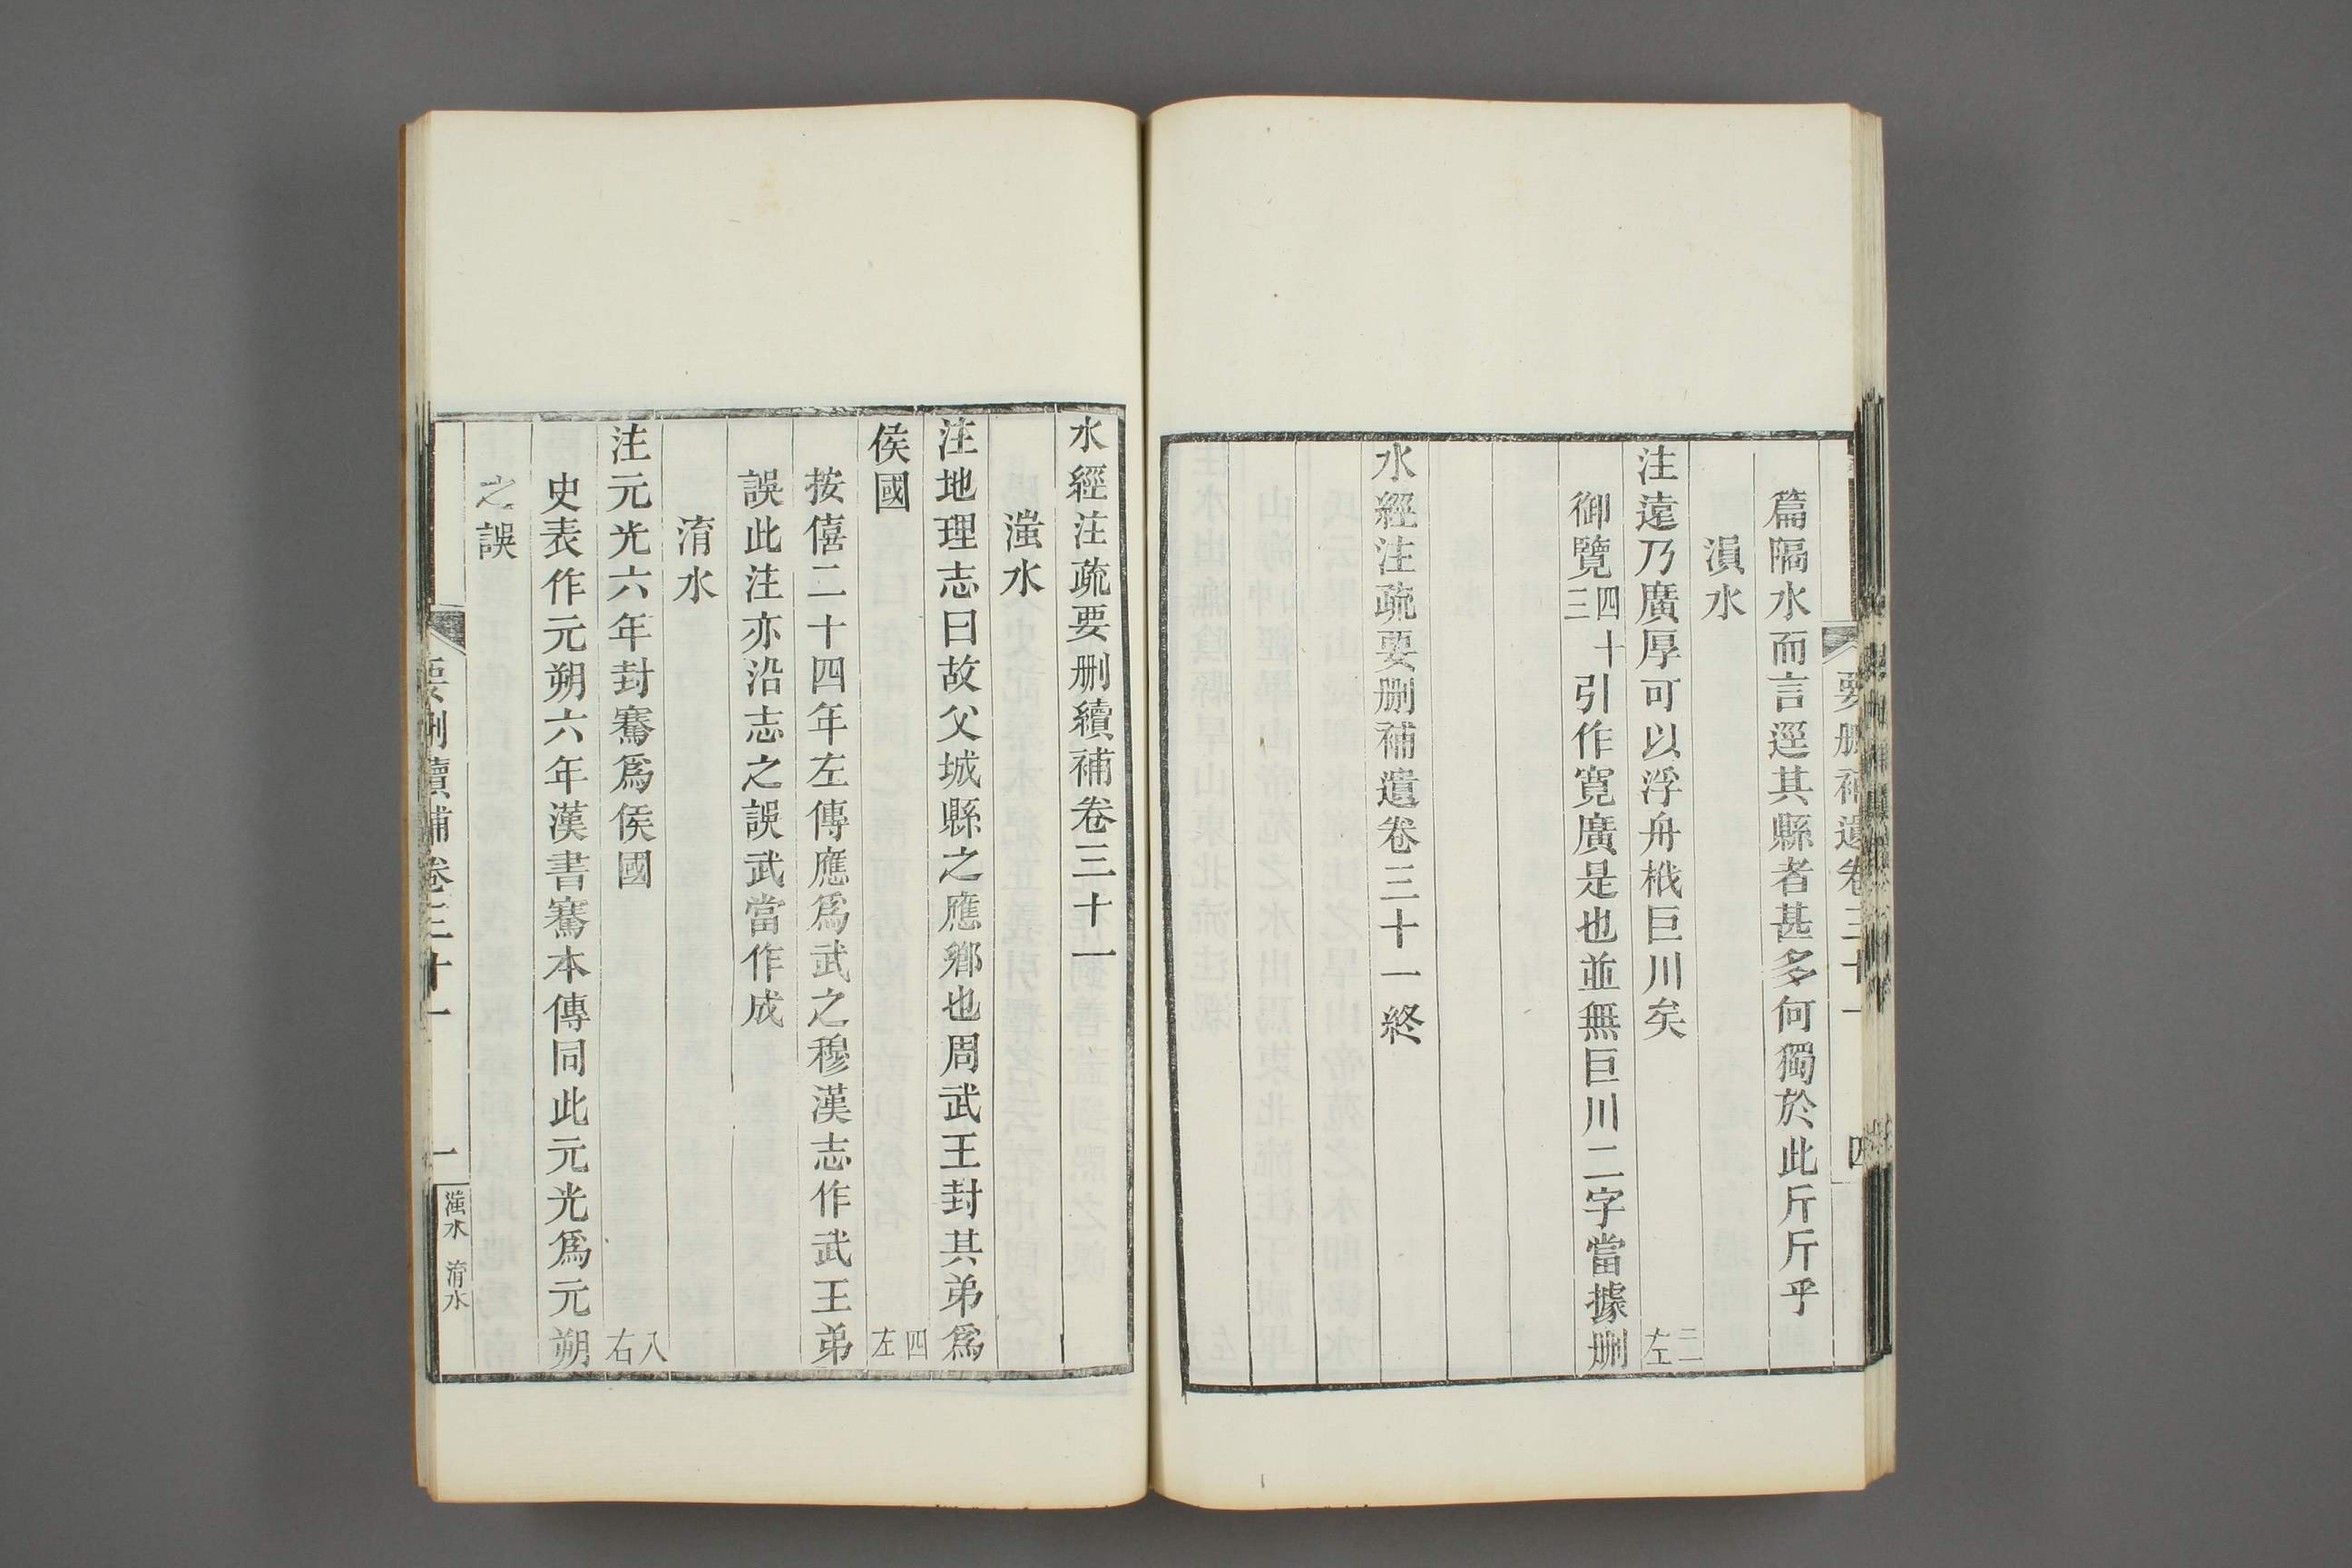 要删補遺卷三十一
四
篇隔水而言逕其縣者甚多何獨於此斤斤乎
溳水
注遠乃廣厚可以浮舟檝巨川矣 二一左
御覽四十三引作寬廣是也並無巨川二字當據删
水經注疏要删補遺卷三十一終
水經注疏要删續補卷三十一
滍水
注地理志曰故父城縣之應鄉也周武王封其弟爲
侯國 四左
按僖二十四年左傳應爲武之穆漢志作武王弟
誤此注亦沿志之誤武當作成
淯水
注元光六年封騫爲侯國 八右
史表作元朔六年漢書騫本傳同此元光爲元朔
之誤
要删續補卷三十一
一
滍水 淯水